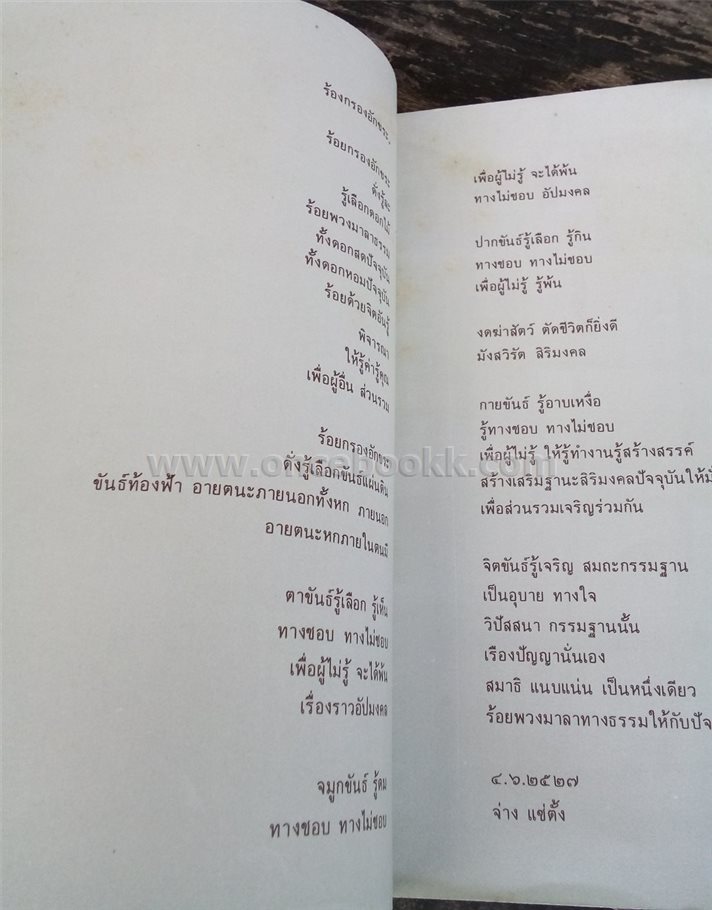 ร้องกรองอักขระ
ร้อยกรองอักขระ
ดั่งรู้จะ
รู้เลือกดอกไม้
ร้อยพวงมาลาธรรม
ทั้งดอกสดปัจจุบัน
ทั้งดอกหอมปัจจุบัน
ร้อยด้วยจิตอันรู้
พิจารณา
ให้รู้ค่ารู้คุณ
เพื่อผู้อื่น ส่วนรวม
ร้อยกรองอักขระ
ดั่งรู้เลือกขันธ์แผ่นดิน
ขันธ์ท้องฟ้า อายตนะภายนอกทั้งหก ภายนอก
อายตนะหกภายในตนมี
ตาขันธ์รู้เลือก รู้เห็น
ทางชอบ ทางไม่ชอบ
เพื่อผู้ไม่รู้ จะได้พ้น
เรื่องราวอัปมงคล
จมูกขันธ์ รู้ดม
ทางชอบ ทางไม่ชอบ
เพื่อผู้ไม่รู้ จะได้พ้น
ทางไม่ชอบ อัปมงคล
ปากขันธ์รู้เลือก รู้กิน
ทางชอบ ทางไม่ชอบ
เพื่อผู้ไม่รู้ รู้พ้น
งดฆ่าสัตว์ ตัดชีวิตก็ยิ่งดี
มังสวิรัต สิริมงคล
กายขันธ์ รู้อาบเหงื่อ
รู้ทางชอบ ทางไม่ชอบ
เพื่อผู้ไม่รู้ ให้รู้ทำงานรู้สร้างสรรค์
สร้างเสริมฐานะสิริมงคลปัจจุบันให้มั
เพื่อส่วนรวมเจริญร่วมกัน
จิตขันธ์รู้เจริญ สมถะกรรมฐาน
เป็นอุบาย ทางใจ
วิปัสสนา กรรมฐานนั้น
เรื่องปัญญานั่นเอง
สมาธิ แนบแน่น เป็นหนึ่งเดียว
ร้อยพวงมาลาทางธรรมให้กับปัจ
๔.๖.๒๕๒๗
จ่าง แซ่ตั้ง